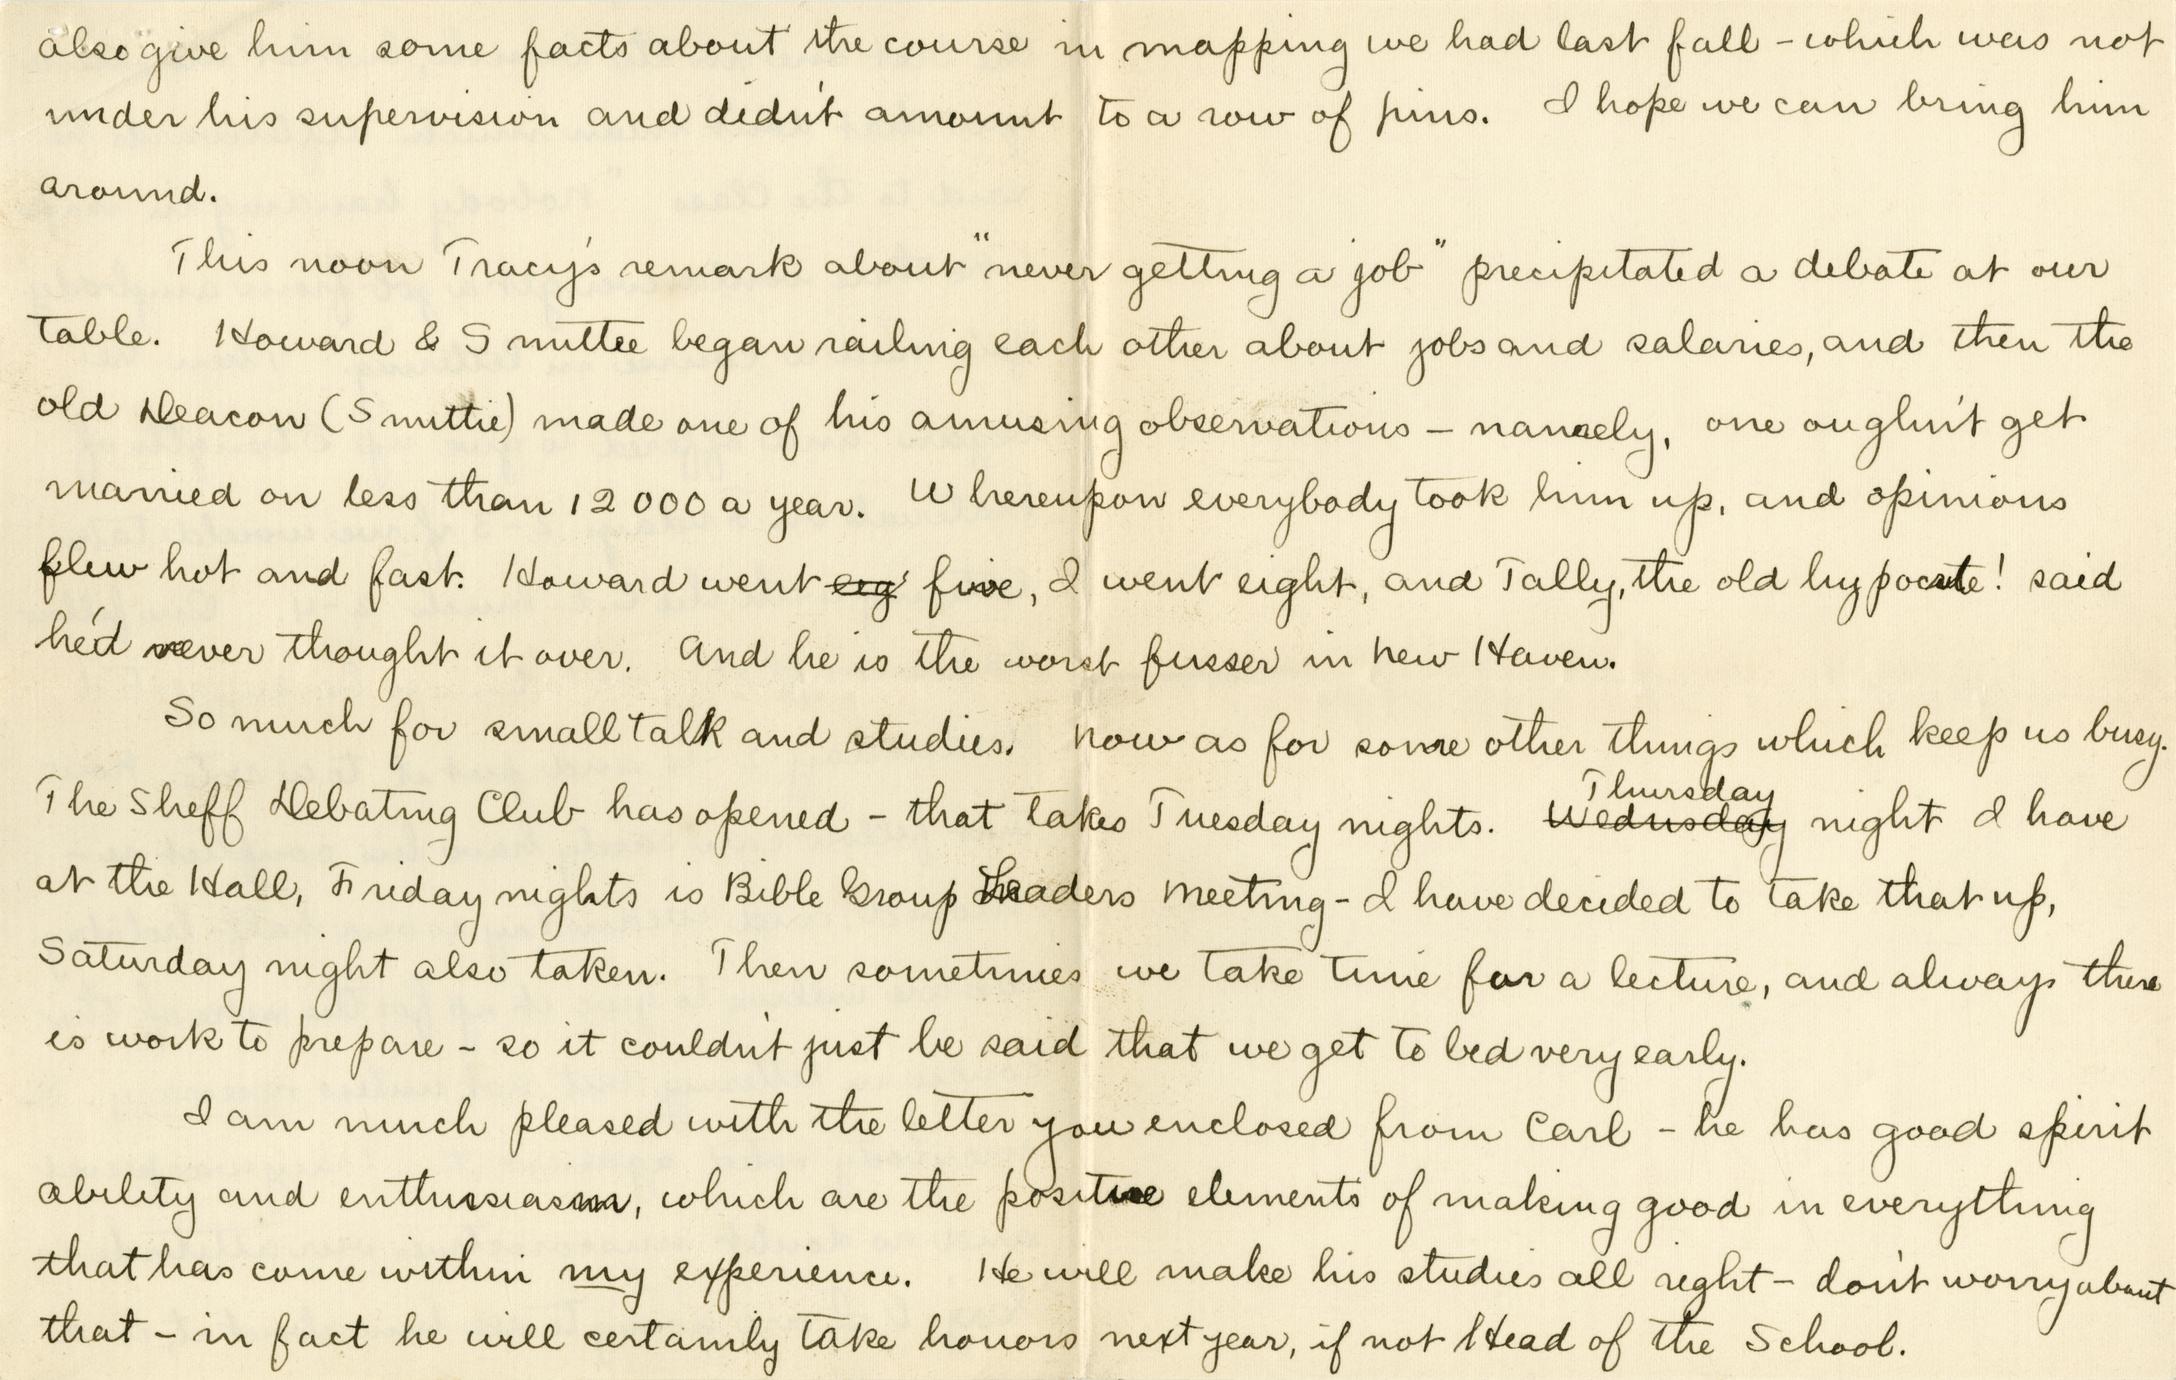 also give him some facts about the course in mapping we had last fall - which was not
under his supervision and didn't amount to a row of pins. I hope we can bring him
around.
This noon Tracy's remark about "never getting a job" precipitated a debate at our
table. Howard & Smittee began railing each other about jobs and salaries, and then the
old Deacon (Smittie) made one of his amusing observations - namely, one oughn't get
married on less than 12000 a year. Whereupon everybody took him up, and opinions
flew hot and fast. Howard went eig five, I went eight, and Tally, the old hypocrite! said
he'd never thought it over. And he is the worst fusser in New Haven.
So much for small talk and studies. Now as for some other things which keep us busy.
The Sheff Debating Club has opened - that takes Tuesday nights. Wednsday Thursday night I have
at the Hall, Friday nights is Bible Group Leaders Meeting - I have decided to take that up,
Saturday night also taken. Then sometimes we take time for a lecture, and always there
is work to prepare - so it couldn't just be said that we get to bed very early.
I am much pleased with the letter you enclosed from Carl - he has good spirit
ability and enthusiasm, which are the positive elements of making good in everything
that has come within my experience. He will make his studies all right - don't worry about
that - in fact he will certainly take honors next year, if not Head of the School.